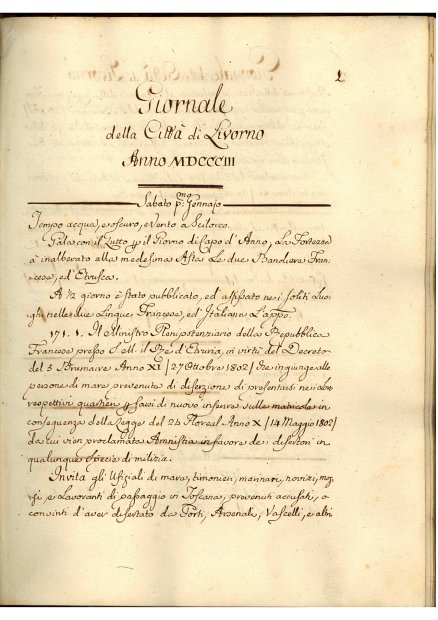 1.
Giornale
della Città di Livorno
Anno MDCCCIII
Sabato pmo Gennajo
Tempo acqua, e scuro, e vento a Scilocco.
Gala con il Lutto p il Giorno di Capo d'Anno, La Fortezza
à inalberato alla medesima Asta Le due Bandiere Fran-
cese, ed Etrusca.
A ½ giorno è stato pubblicato, ed affissato nei soliti Luo-
ghi nelle due Lingue Francese, ed Italiana L'appo.
Il Ministro Plenipotenziario della Repubblica
Francese presso S. M. il Re d'Etruria, in virtù del Decreto
del 5 Brumaire Anno XI / 27 Ottobre 1802/ che ingiunge alle
persone di mare, prevenute di diserzione di presentarsi nei loro
respettivi quartieri p farsi di nuovo inscrivere sulle matricole in
conseguenza della Legge del 24 Floreal Anno X /14 Maggio 1802/
da cui vien proclamata Amnistia in favore de' disertori in
qualunque specie di milizia.
Invita gli Ufiziali di mare, timonieri, marinari, novizi, moz-
zi, e Lavoranti di passaggio in Toscana, prevenuti accusati, o
convinti d'aver disertato da Porti, Arsenali, Vascelli, e altri